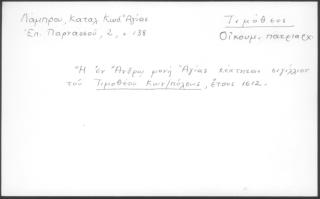 Λάμπρου, Καταλ Κωδ Ἁγίας
Ἐπ. Παρνασσοῦ, 2, σ 138
Τιμόθεος
Οἰκουμ. πατριάρχ
Ἡ ἐν Ἄνδρῳ μονή Ἁγίας κέκτηται σιγίλλιον
τοῦ Τιμοθέου Κων/πόλεως, ἔτους 1612.